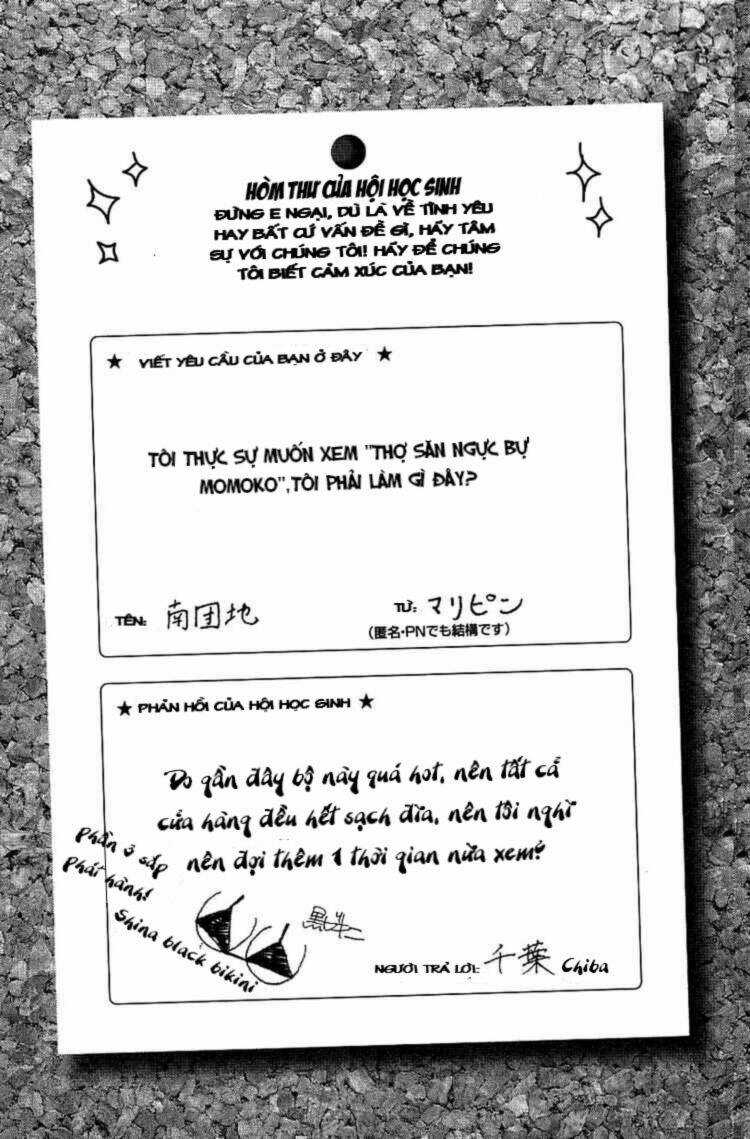 HÒM THƯ CỦA HỘI HỌC SINH
ĐỪNG E NGẠI, DÙ LÀ VỀ TÌNH YÊU
HAY BẤT CỨ VẤN ĐỀ GÌ, HÃY TÂM
SỰ VỚI CHÚNG TÔI! HÃY ĐỂ CHÚNG
TÔI BIẾT CẢM XÚC CỦA BẠN!
★ VIẾT YÊU CẦU CỦA BẠN Ở ĐÂY ★
TÔI THỰC SỰ MUỐN XEM "THỢ SĂN NGỰC BỰ
MOMOKO",TÔI PHẢI LÀM GÌ ĐÂY?
TÊN: 南団地
TỪ: マリピン
(匿名・PNでも結構です)
★ PHẢN HỒI CỦA HỘI HỌC SINH ★
Do gần đây bộ này quá hot, nên tất cả
cửa hàng đều hết sạch đĩa, nên tôi nghĩ
nên đợi thêm 1 thời gian nữa xem?
Phần 3 sắp
Phát hành!
Shina black bikini
黒ビキニ
NGƯỜI TRẢ LỜI: 千葉 Chiba